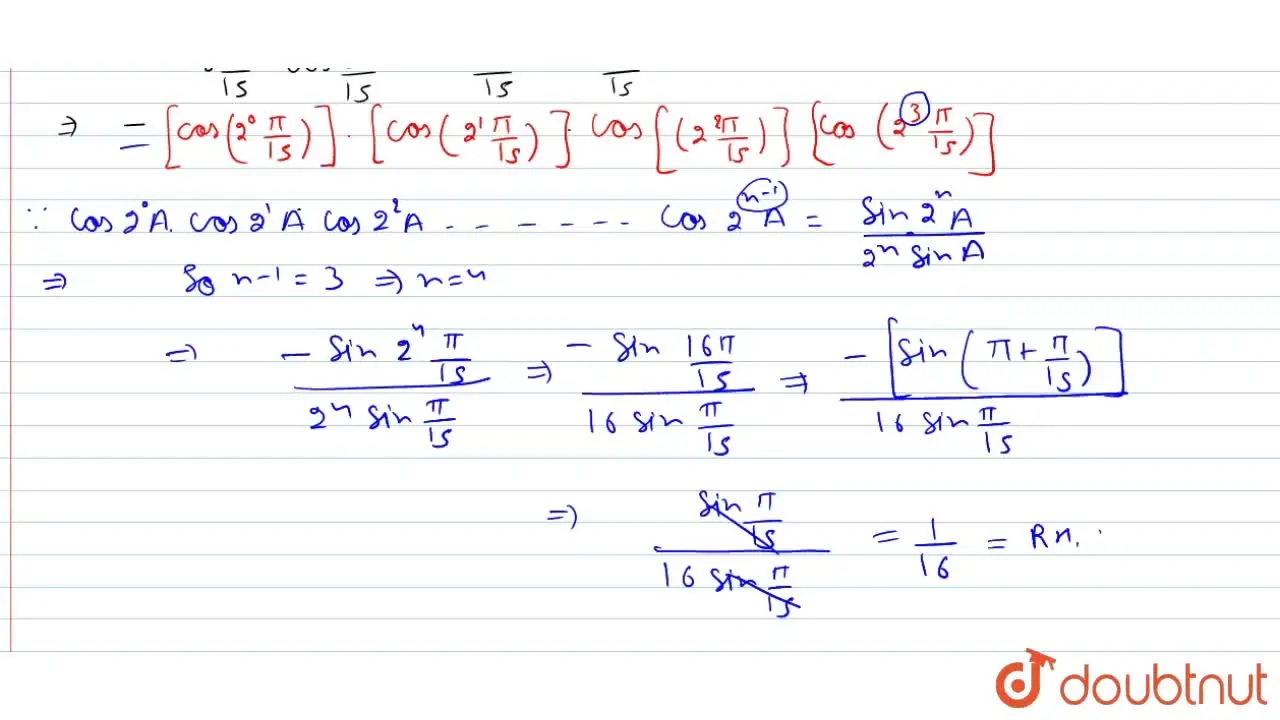 15 cos 15 15 15
⇒ = - [cos(2⁰ π/15)] · [cos(2¹ π/15)] · cos[(2² π/15)] [cos(2³ π/15)]
∵ cos 2⁰A. cos 2¹A cos 2²A - - - - - - - cos 2ⁿ⁻¹A = sin 2ⁿA / 2ⁿ sin A
⇒ So n-1 = 3 ⇒ n=4
⇒ - sin 2⁴ π/15 / 2⁴ sin π/15 ⇒ - sin 16π/15 / 16 sin π/15 ⇒ - [sin(π + π/15)] / 16 sin π/15
⇒ sin π/15 / 16 sin π/15 = 1/16 = RH.
doubtnut